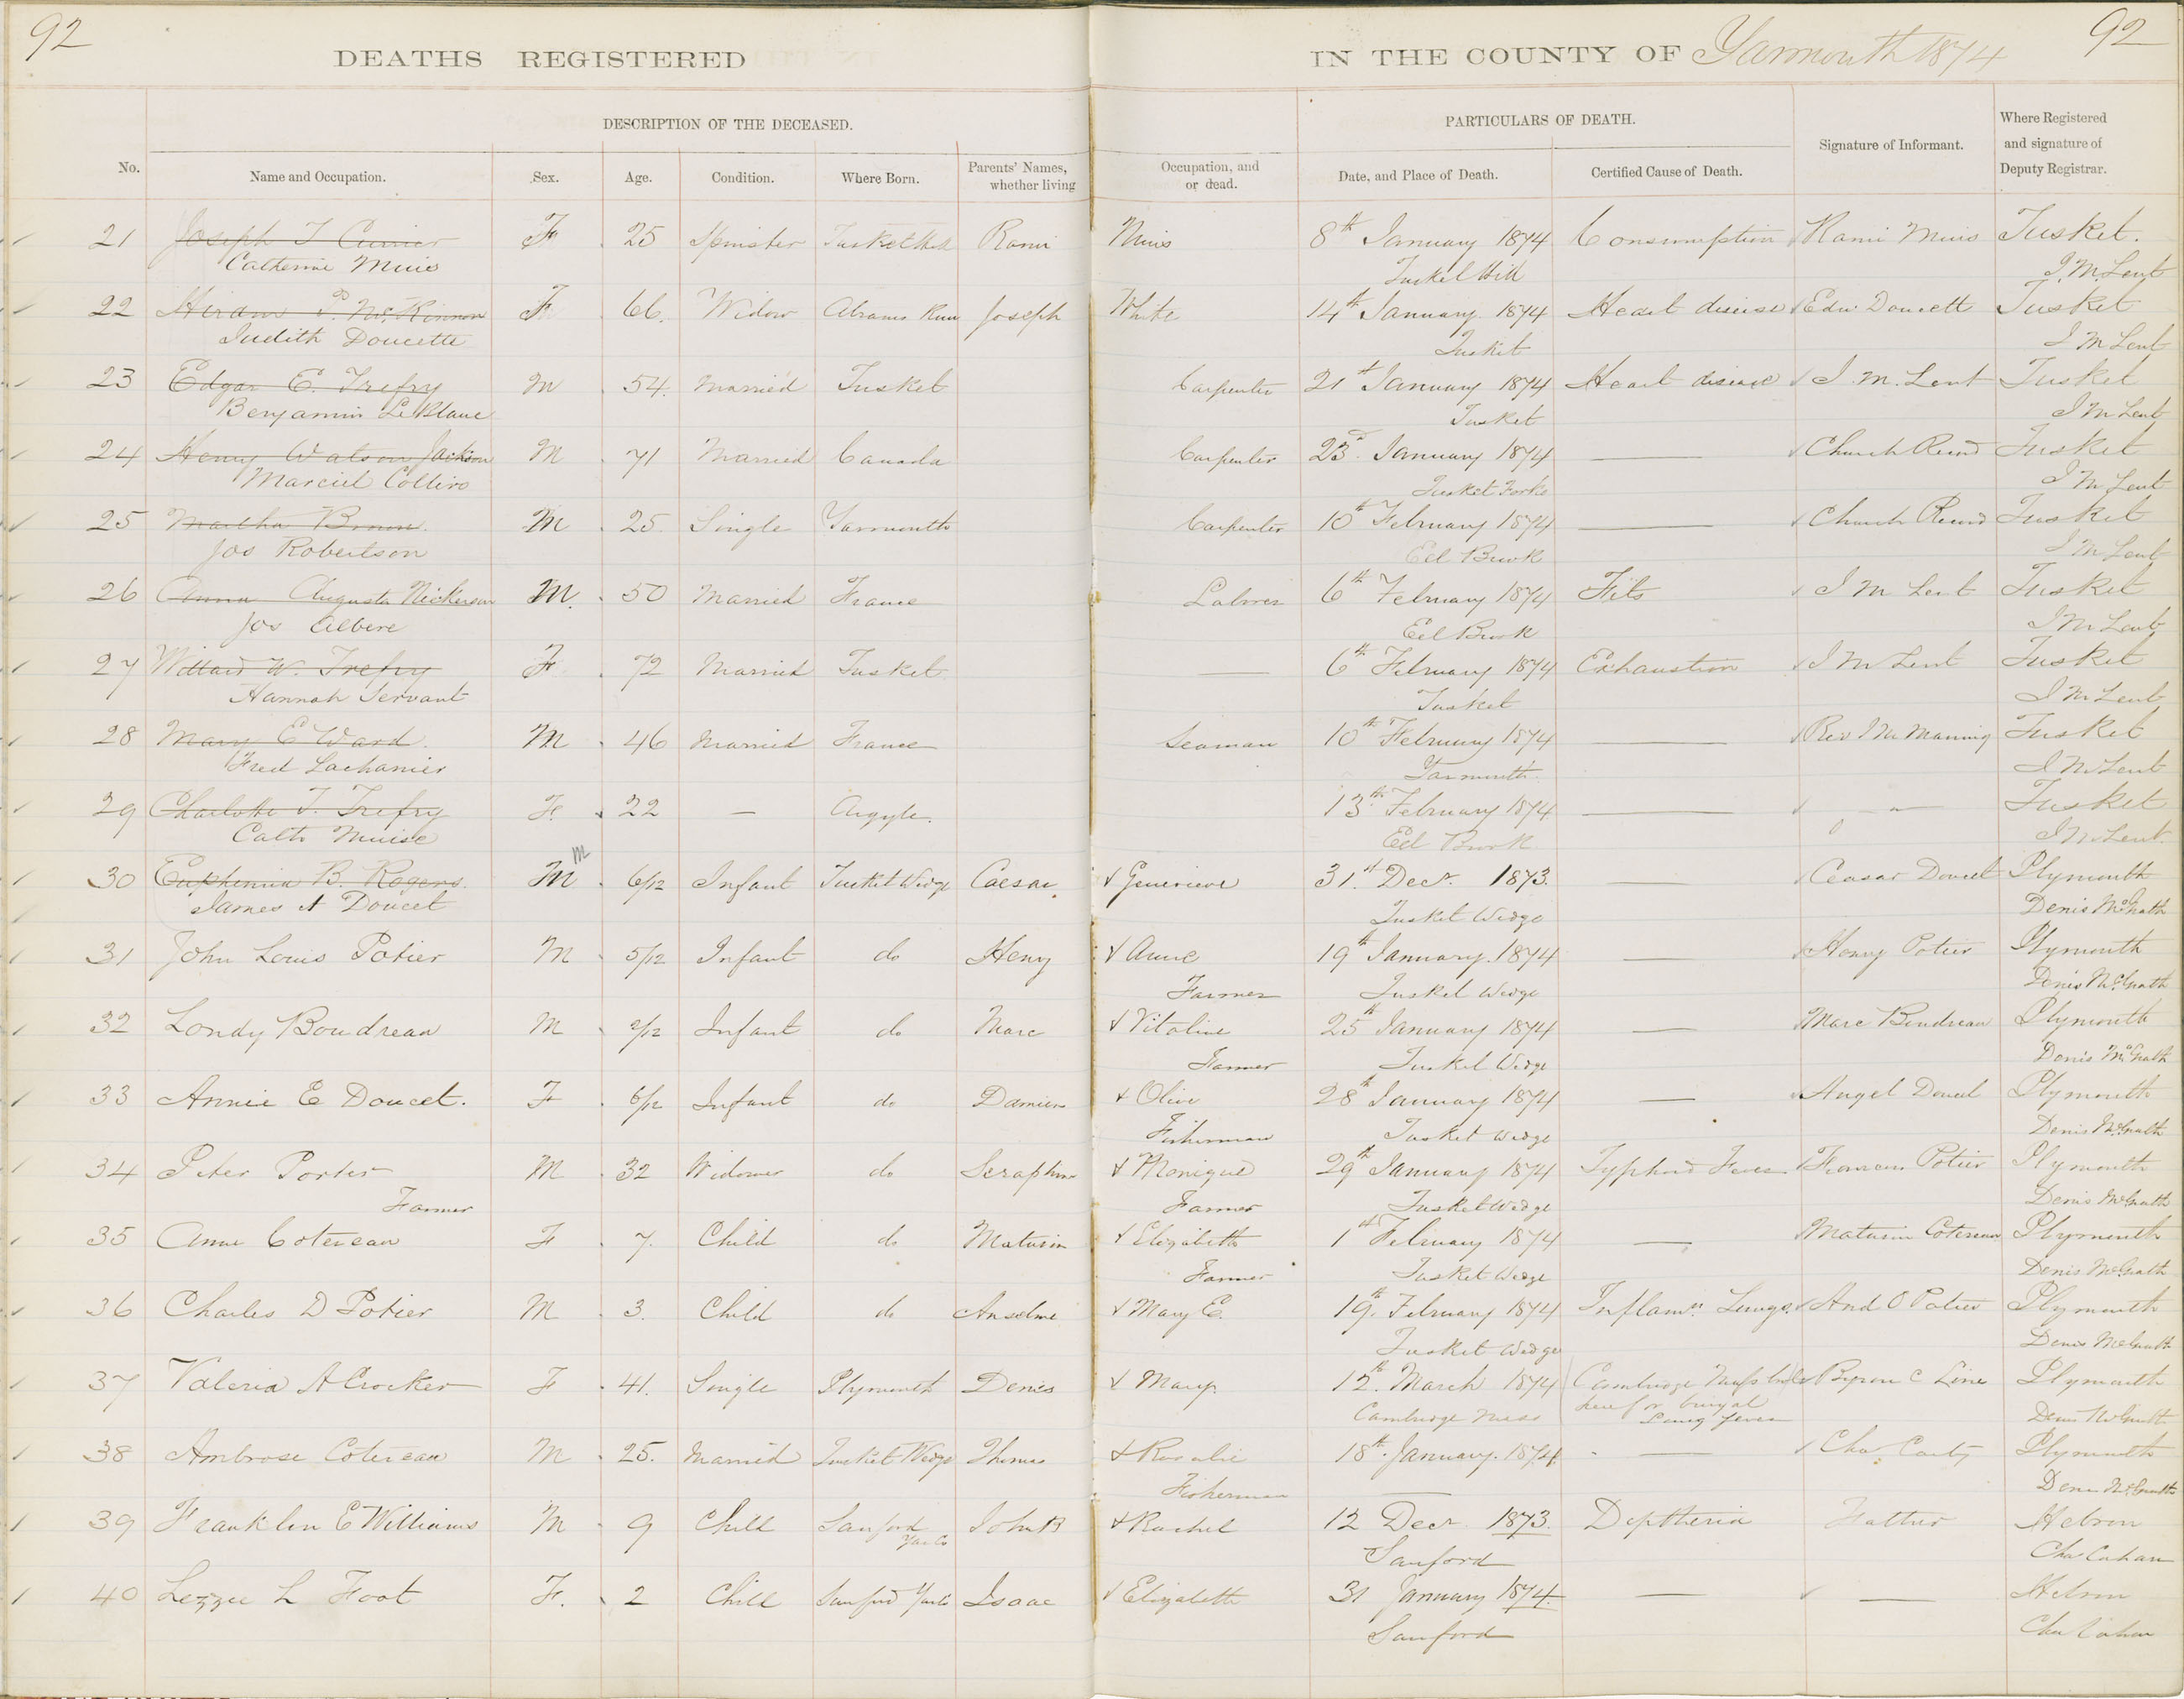 92
92
DEATHS REGISTERED
IN THE COUNTY OF Yarmouth 1874
DESCRIPTION OF THE DECEASED.
PARTICULARS OF DEATH.
No. Name and Occupation. Sex. Age. Condition. Where Born. Parents' Names, whether living Occupation, and or dead. Date, and Place of Death. Certified Cause of Death. Signature of Informant. Where Registered and signature of Deputy Registrar.
21 Joseph T Currier F 25 Spinster Tusket Hill Remi Muis 8th January 1874 Consumption Remi Muis Tusket.
Catherine Muis Tusket Hill J. M. Lent
22 Hiram P. McKinnon F 66. Widow Abrams River Joseph White 14th January 1874 Heart disease Edw Doucett Tusket
Judith Doucette Tusket J M Lent
23 Edgar E. Trefry M 54. Married Tusket Carpenter 21st January 1874 Heart disease J. M. Lent Tusket
Benjamin LeBlanc Tusket J M Lent
24 Henry Watson Jackson M 71 Married Canada Carpenter 23d. January 1874 Church Record Tusket
Marciel Tusket Forks J M Lent
25 Martha Brown M 25. Single Yarmouth Carpenter 10th February 1874 Church Record Tusket
Jos Robertson Eel Brook J M Lent
26 Anna Augusta Nickerson M. 50 Married France Laborer 6th February 1874 Fits J M Lent Tusket
Jos Albere Eel Brook J M Lent
27 Willard W. Trefry F 72 Married Tusket 6th February 1874 Exhaustion J M Lent Tusket
Hannah Servant Tusket J M Lent
28 Mary E Ward M 46 Married France Seaman 10th February 1874 Rev J M Manning Tusket
Fred Lachanier Yarmouth J M Lent
29 Charlotte T. Trefry F. 22 — Argyle. 13th February 1874 Tusket
Cath Muise Eel Brook J M Lent
30 Euphemia B. Rogers M M 6/12 Infant Tusket Wedge Caesar & Genevieve 31st Decr. 1873. Ceasar Doucet Plymouth
James A Doucet Tusket Wedge Denis McGrath
31 John Louis Potier M 5/12 Infant do Henry & Anne 19th January. 1874 Henry Potier Plymouth
Farmer Tusket Wedge Denis McGrath
32 Londy Boudreau M 2/12 Infant do Marc & Vitaline 25th January 1874 Marc Boudreau Plymouth
Farmer Tusket Wedge Denis McGrath
33 Annie E Doucet. F 6/12 Infant do Damien & Olive 28th January 1874 Angel Doucet Plymouth
Fisherman Tusket Wedge Denis McGrath
34 Peter Porter M 32 Widower do Seraphim & Monique 29th January 1874 Typhoid Fever Potier Plymouth
Farmer Farmer Tusket Wedge Denis McGrath
35 Anne Cotereau F 7. Child do Maturin & Elizabeth 1st February 1874 Maturin Cotereau Plymouth
Farmer Tusket Wedge Denis McGrath
36 Charles D Potier M 3. Child do Anselme & Mary E. 19th. February 1874 Inflamn Lungs. And O Potier Plymouth
Tusket Wedge Denis McGrath
37 Valeria A Crocker F 41. Single Plymouth Denis & Mary. 12th. March 1874 Cambridge Byron C Line Plymouth
Cambridge Mass here for burial Lung fever Denis McGrath
38 Ambrose Cotereau M 25. Married Tusket Wedge Thomas & Rosalie 18th. January. 1874. Cha Carty Plymouth
Fisherman Denis McGrath
39 Franklin E Williams M 9 Child Sanford Yar Co John B & Rachel 12 Decr 1873. Deptheria Father Hebron
Sanford Cha Cahan
40 Lezzie L Foot F. 2 Child Sanford Yar Co Isaac & Elizabeth 31 January 1874. Hebron
Sanford Cha Cahan